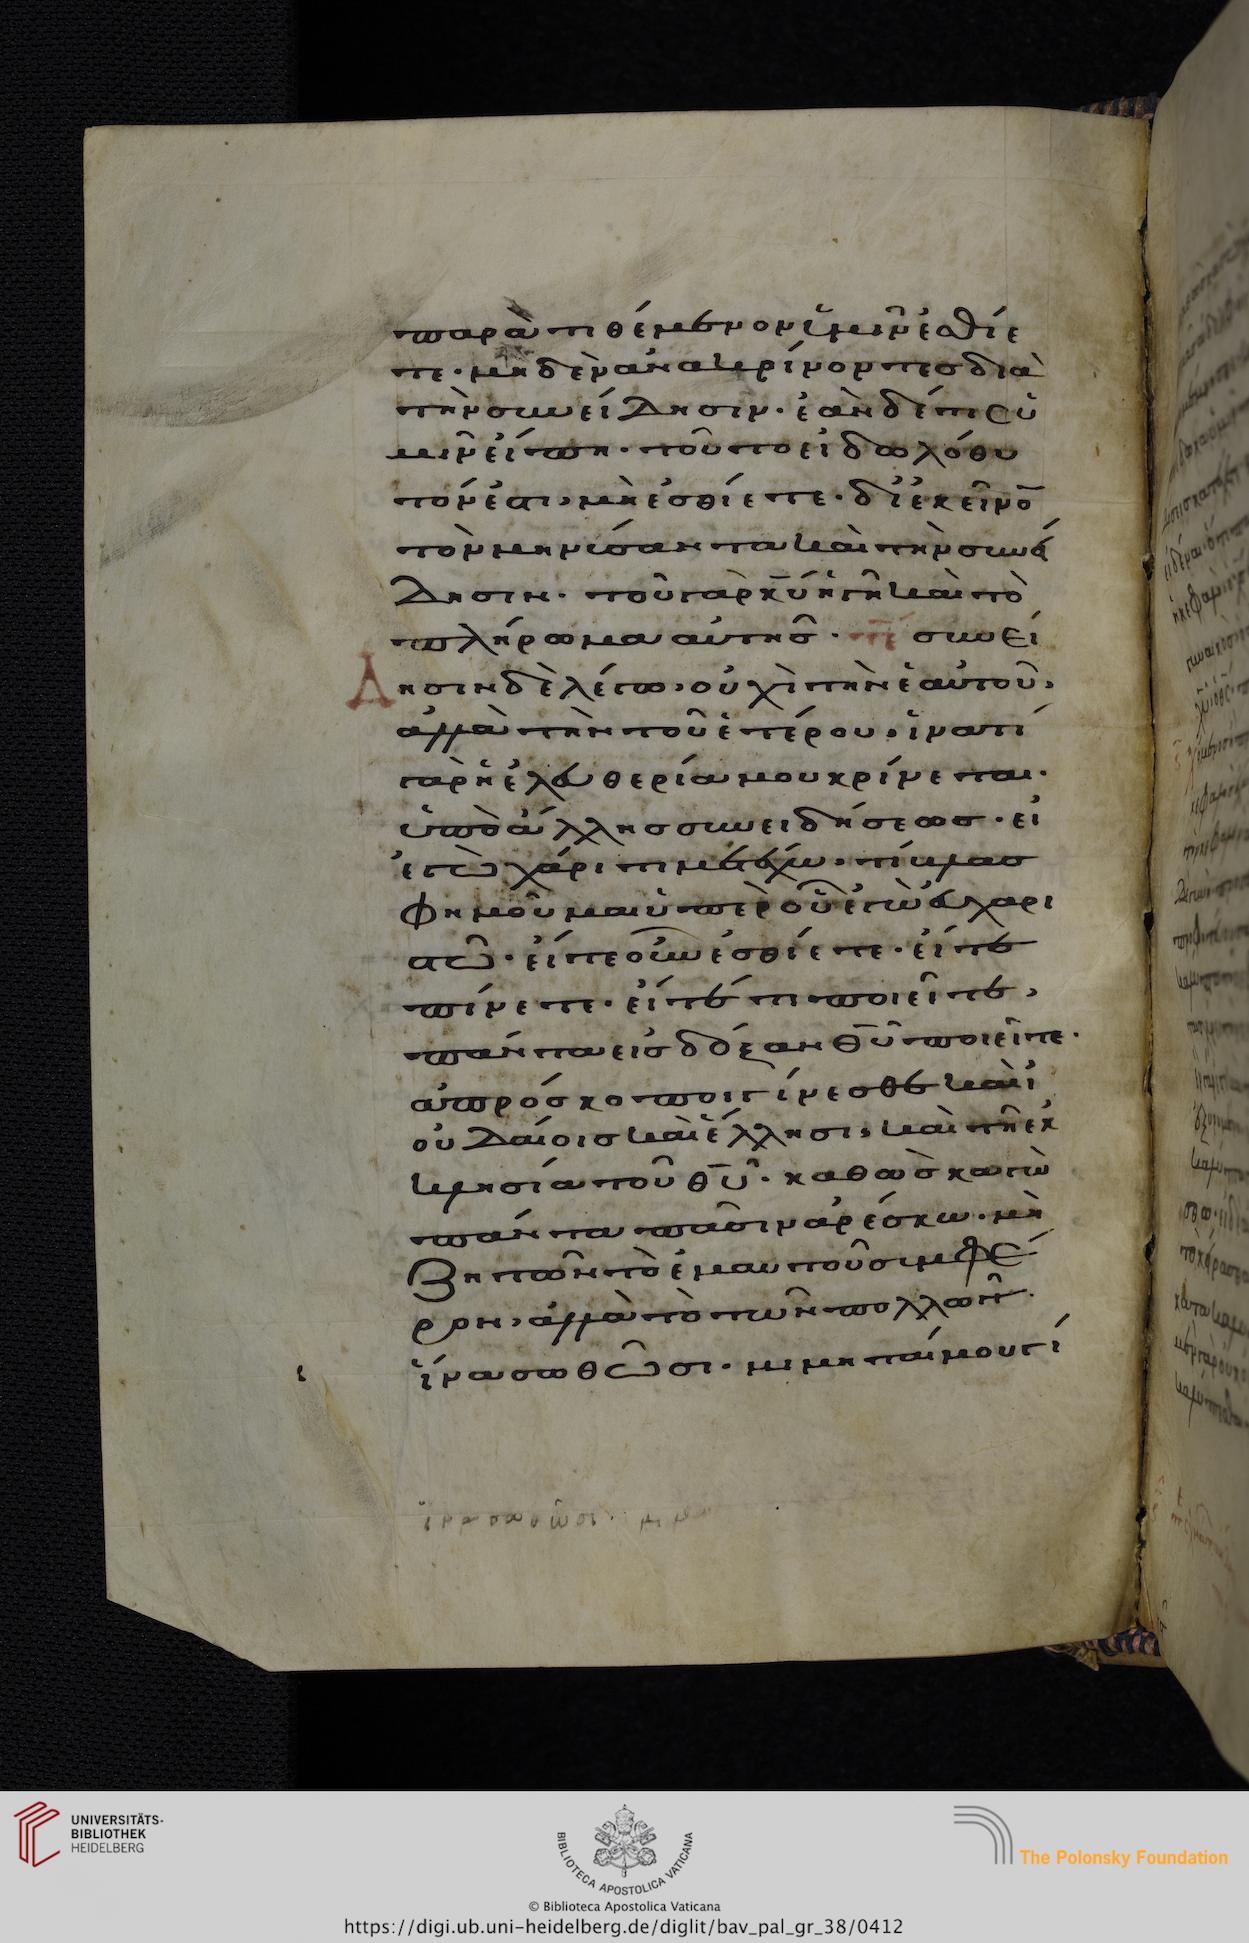 παρατιθέμενον ὑμῖν ἐσθίε
τε· μηδὲν ἀνακρίνοντες διὰ
τὴν συνείδησιν· ἐὰν δέ τις ὑ
μῖν εἴπη· τοῦτο εἰδωλόθυ
τόν ἐστι, μὴ ἐσθίετε· δι' ἐκεῖνο̅
τὸν μηνύσαντα καὶ τὴν συνεί
δησιν· τοῦ γὰρ κ̅υ̅ ἡ γῆ καὶ τὸ
πλήρωμα αὐτῆς· συνεί
δησιν δὲ λέγω, οὐχὶ τὴν ἑαυτοῦ,
ἀλλὰ τὴν τοῦ ἑτέρου· ἱνατί
γὰρ ἡ ἐλευθερία μου κρίνεται·
ὑπὸ ἄλλης συνειδήσεως· εἰ
ἐγὼ χάριτι μετέχω· τί βλασ
φημοῦμαι ὑπὲρ οὗ ἐγὼ εὐχαρι
στῶ· εἴτε οὖν ἐσθίετε· εἴτε
πίνετε· εἴτέ τι ποιεῖτε,
πάντα εἰς δόξαν θ̅υ̅ ποιεῖτε·
ἀπρόσκοποι γίνεσθε καὶ ἰ
ουδαίοις καὶ ἕλλησι, καὶ τῆ ἐκ
κλησία τοῦ θ̅υ̅· καθὼς κἀγὼ
πάντα πᾶσιν ἀρέσκω· μὴ
ζητῶν τὸ ἐμαυτοῦ συμφέ
ρον, ἀλλὰ τὸ τῶν πολλῶν·
ἵνα σωθῶσι· μιμηταί μου γί
ἵνα σωθῶσι· μιμ
UNIVERSITÄTS-
BIBLIOTHEK
HEIDELBERG
BIBLIOTECA APOSTOLICA VATICANA
The Polonsky Foundation
© Biblioteca Apostolica Vaticana
https://digi.ub.uni-heidelberg.de/diglit/bav_pal_gr_38/0412